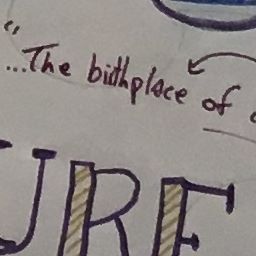 "...The bithplace of
URE